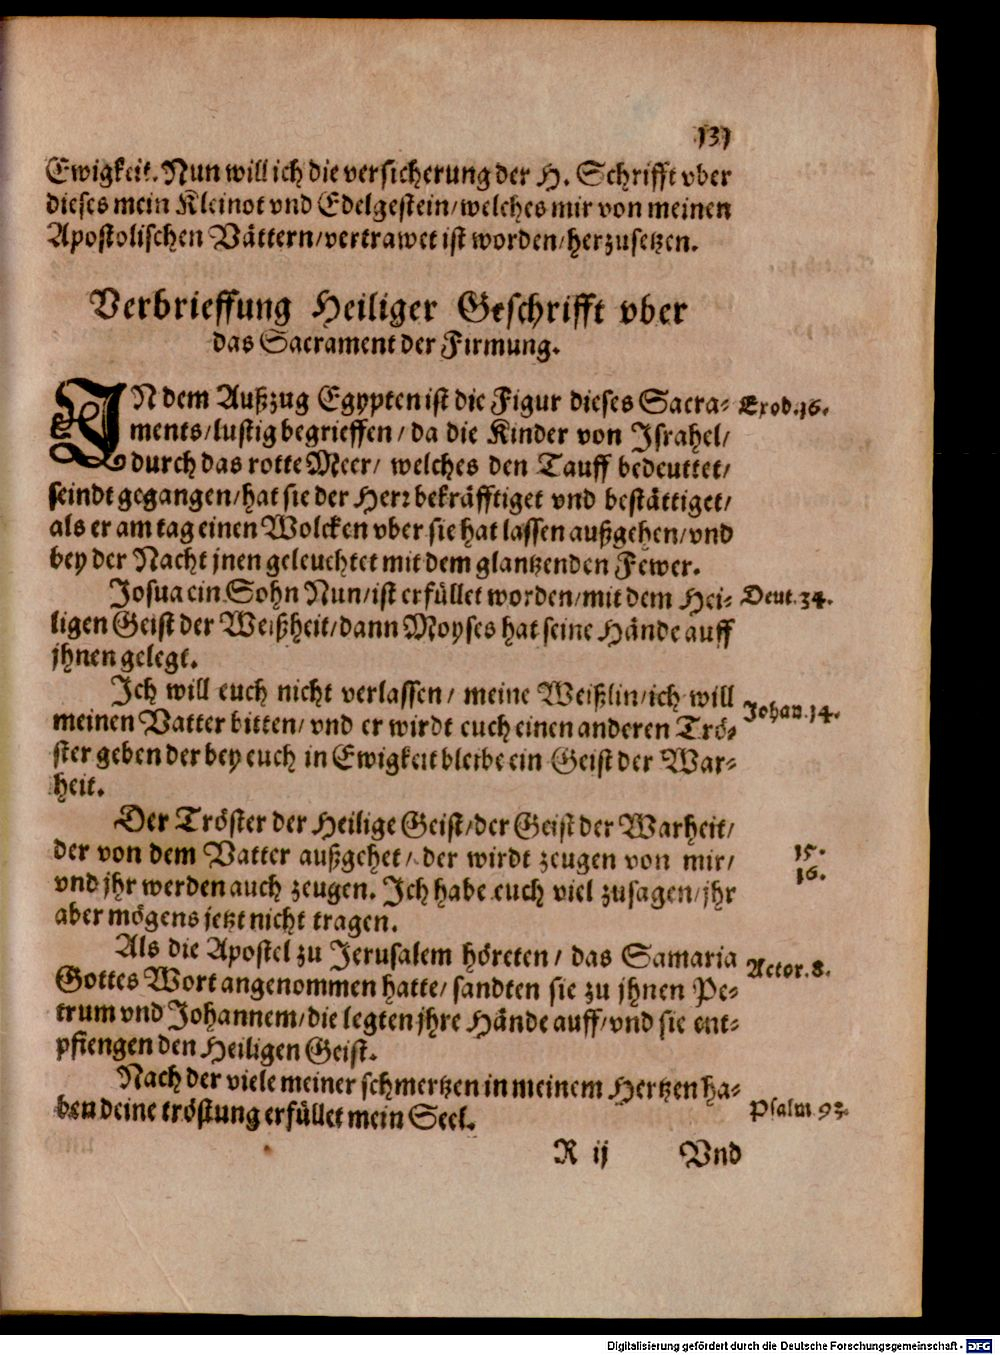 131
Ewigkeit. Nun will ich die versicherung der H. Schrifft vber
dieses mein Kleinot vnd Edelgestein/welches mir von meinen
Apostolischen Vättern/vertrawet ist worden/herzusetzen.
Verbrieffung Heiliger Geschrifft vber
das Sacrament der Firmung.
IN dem Außzug Egypten ist die Figur dieses Sacra- Exod. 16.
ments/lustig begrieffen/da die Kinder von Israhel/
durch das rotte Meer/ welches den Tauff bedeuttet/
seindt gegangen/hat sie der Herr bekräfftiget vnd bestättiget/
als er am tag einen Wolcken vber sie hat lassen außgehen/vnd
bey der Nacht jnen geleuchtet mit dem glantzenden Fewer.
Josua ein Sohn Nun/ist erfüllet worden/mit dem Hei- Deut. 34.
ligen Geist der Weißheit/dann Moyses hat seine Hände auff
jhnen gelegt.
Ich will euch nicht verlassen/ meine Weißlin/ich will
Johan. 14.
meinen Vatter bitten/ vnd er wirdt euch einen anderen Trö-
ster geben der bey euch in Ewigkeit bleibe ein Geist der War-
heit.
Der Tröster der Heilige Geist/der Geist der Warheit/
der von dem Vatter außgehet/ der wirdt zeugen von mir/ 15.
16.
vnd jhr werden auch zeugen. Ich habe euch viel zusagen/jhr
aber mögens jetzt nicht tragen.
Als die Apostel zu Jerusalem höreten/ das Samaria
Actor. 8.
Gottes Wort angenommen hatte/ sandten sie zu jhnen Pe-
trum vnd Johannem/die legten jhre Hände auff/vnd sie ent-
pfiengen den Heiligen Geist.
Nach der viele meiner schmertzen in meinem Hertzen ha-
ben deine tröstung erfüllet mein Seel. Psalm 93.
R ij Vnd
Digitalisierung gefördert durch die Deutsche Forschungsgemeinschaft - DFG